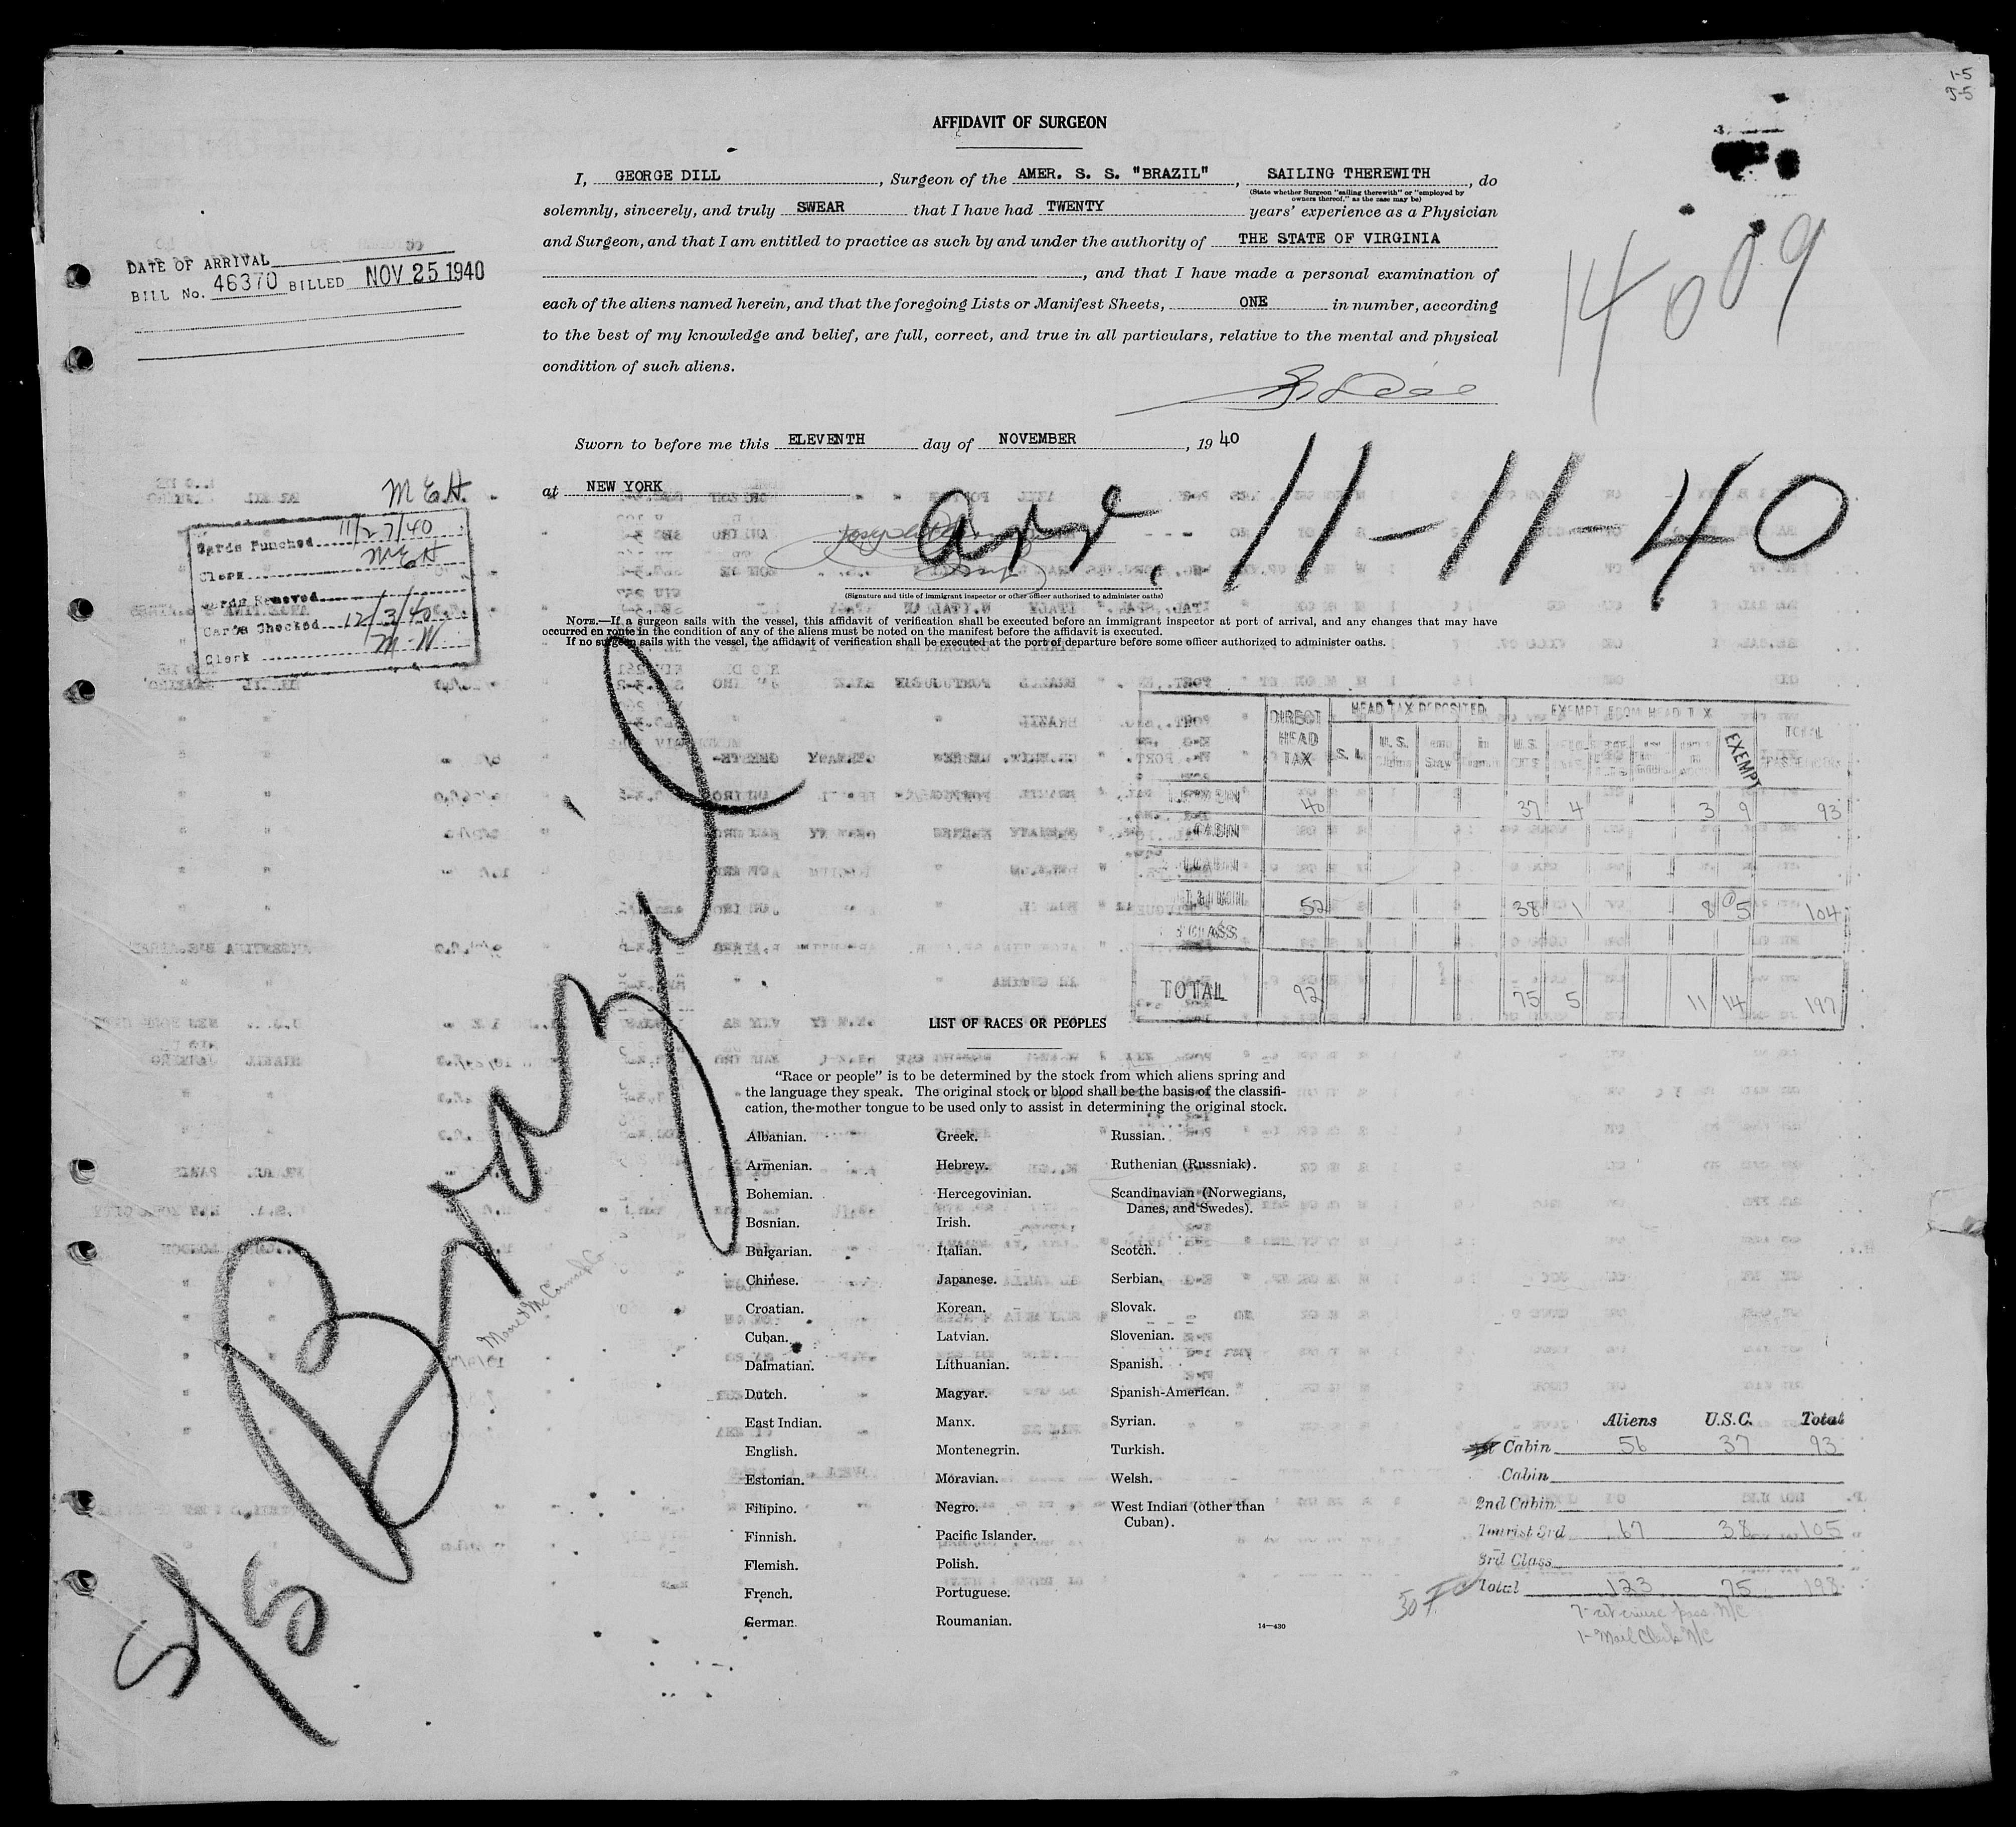 1-5
AFFIDAVIT OF SURGEON
I, GEORGE DILL, Surgeon of the AMER. S. S. "BRAZIL", SAILING THEREWITH, do
(State whether Surgeon "sailing therewith" or "employed by owners thereof," as the case may be)
solemnly, sincerely, and truly SWEAR that I have had TWENTY years' experience as a Physician
and Surgeon, and that I am entitled to practice as such by and under the authority of THE STATE OF VIRGINIA
, and that I have made a personal examination of
each of the aliens named herein, and that the foregoing Lists or Manifest Sheets, ONE in number, according
to the best of my knowledge and belief, are full, correct, and true in all particulars, relative to the mental and physical
condition of such aliens.
DATE OF ARRIVAL
BILL No. 46370 BILLED NOV 25 1940
14009
Sworn to before me this ELEVENTH day of NOVEMBER, 1940
at NEW YORK
arr. 11-11-40
(Signature and title of immigrant inspector or other officer authorized to administer oaths)
M E H.
Cards Punched 11/27/40
Clerk MEH
Cards Removed
Cards Checked 12/3/40
Clerk M-W
NOTE.—If a surgeon sails with the vessel, this affidavit of verification shall be executed before an immigrant inspector at port of arrival, and any changes that may have
occurred en route in the condition of any of the aliens must be noted on the manifest before the affidavit is executed.
If no surgeon sails with the vessel, the affidavit of verification shall be executed at the port of departure before some officer authorized to administer oaths.
S/S Brazil
DIRECT HEAD TAX HEAD TAX DEPOSITED EXEMPT FROM HEAD TAX TOTAL
S. L. U. S. EXEMPT
40 37 4 3 9 93
CABIN
CABIN
52 38 1 8 5 104
CLASS
TOTAL 92 75 5 11 14 197
LIST OF RACES OR PEOPLES
"Race or people" is to be determined by the stock from which aliens spring and
the language they speak. The original stock or blood shall be the basis of the classifi-
cation, the mother tongue to be used only to assist in determining the original stock.
Albanian.
Armenian.
Bohemian.
Bosnian.
Bulgarian.
Chinese.
Croatian.
Cuban.
Dalmatian.
Dutch.
East Indian.
English.
Estonian.
Filipino.
Finnish.
Flemish.
French.
German.
Greek.
Hebrew.
Hercegovinian.
Irish.
Italian.
Japanese.
Korean.
Latvian.
Lithuanian.
Magyar.
Manx.
Montenegrin.
Moravian.
Negro.
Pacific Islander.
Polish.
Portuguese.
Roumanian.
Russian.
Ruthenian (Russniak).
Scandinavian (Norwegians,
Danes, and Swedes).
Scotch.
Serbian.
Slovak.
Slovenian.
Spanish.
Spanish-American.
Syrian.
Turkish.
Welsh.
West Indian (other than
Cuban).
14—430
Aliens U.S.C. Total
1st Cabin 56 37 93
Cabin
2nd Cabin
Tourist 3rd 67 38 105
3rd Class
Total 123 75 198
1- Mail Clerk N/C